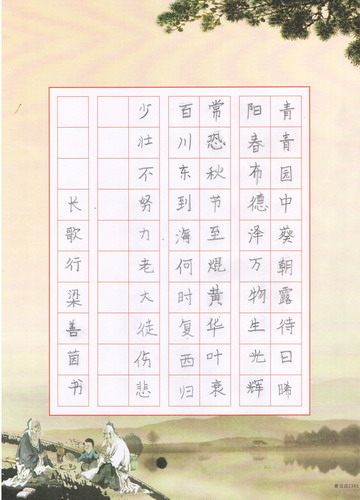 青青园中葵朝露待日晞
阳春布德泽万物生光辉
常恐秋节至焜黄华叶衰
百川东到海何时复西归
少壮不努力老大徒伤悲
长歌行梁善茵书